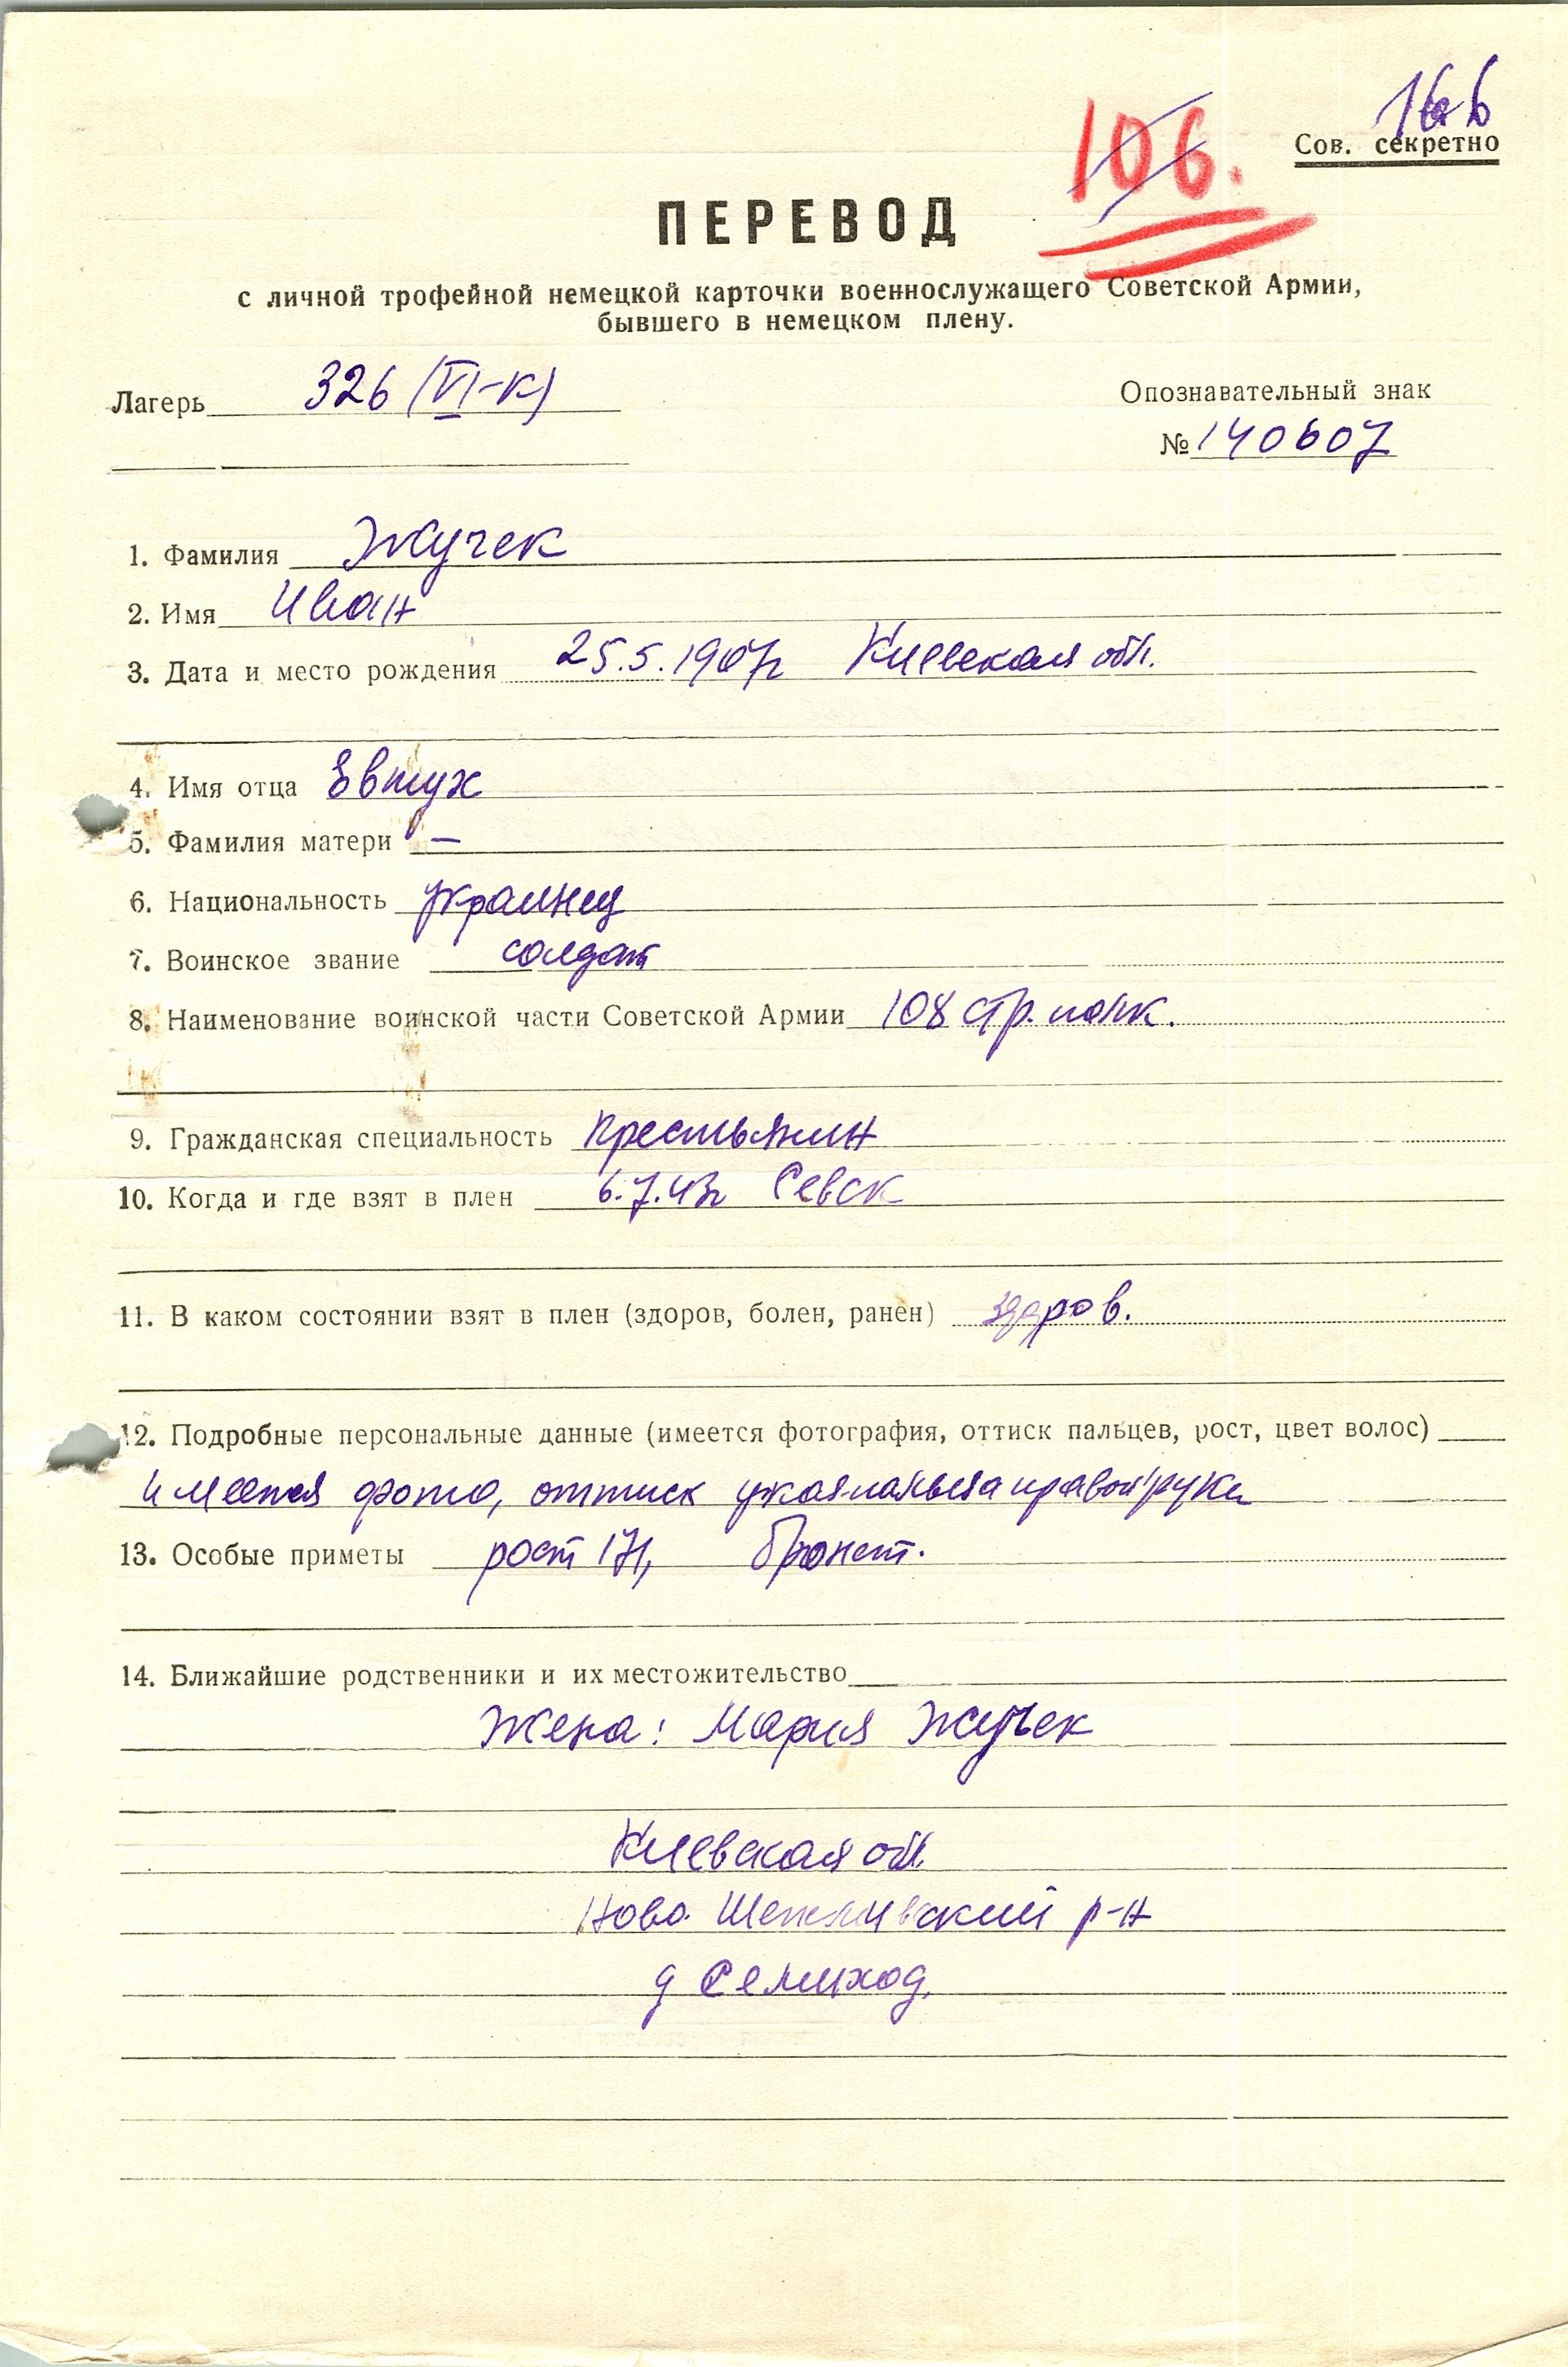 166
106.
Сов. секретно
ПЕРЕВОД
с личной трофейной немецкой карточки военнослужащего Советской Армии,
бывшего в немецком плену.
Лагерь 326 (VI-К)
Опознавательный знак
№ 140607
1. Фамилия Жучек
2. Имя Иван
3. Дата и место рождения 25.5.1907г Киевская обл.
4. Имя отца Евтух
5. Фамилия матери —
6. Национальность украинец
7. Воинское звание солдат
8. Наименование воинской части Советской Армии 108 стр. полк.
9. Гражданская специальность крестьянин
10. Когда и где взят в плен 6.7.43г Севск
11. В каком состоянии взят в плен (здоров, болен, ранен) здоров.
12. Подробные персональные данные (имеется фотография, оттиск пальцев, рост, цвет волос)
имеется фото, оттиск указ. пальца правой руки
13. Особые приметы рост 171, брюнет.
14. Ближайшие родственники и их местожительство
Жена: Мария Жучек
Киевская обл.
Ново Шепеливский р-н
д Семиход.